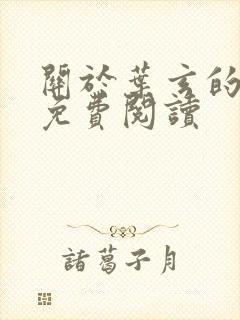 關於葉玄的
免費閱讀
諸葛子月